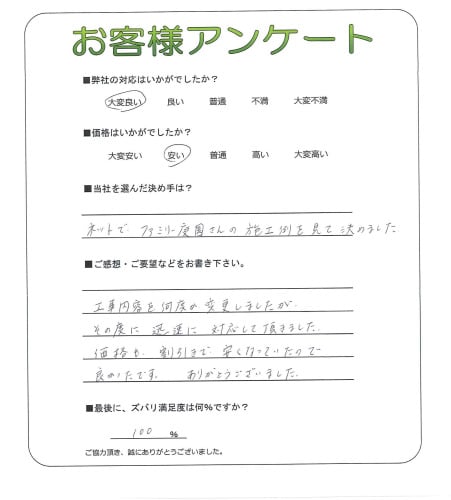 お客様アンケート
■弊社の対応はいかがでしたか?
大変良い 良い 普通 不満 大変不満
■価格はいかがでしたか?
大変安い 安い 普通 高い 大変高い
■当社を選んだ決め手は?
ネットで ファミリー庭園さんの 施工例を見て決めました
■ご感想・ご要望などをお書き下さい。
工事内容を何度か変更しましたが、
その度に 迅速に 対応して頂きました。
価格も 割引まで 安くなっていたので
良かったです。 ありがとうございました。
■最後に、ズバリ満足度は何%ですか?
100 %
ご協力頂き、誠にありがとうございました。